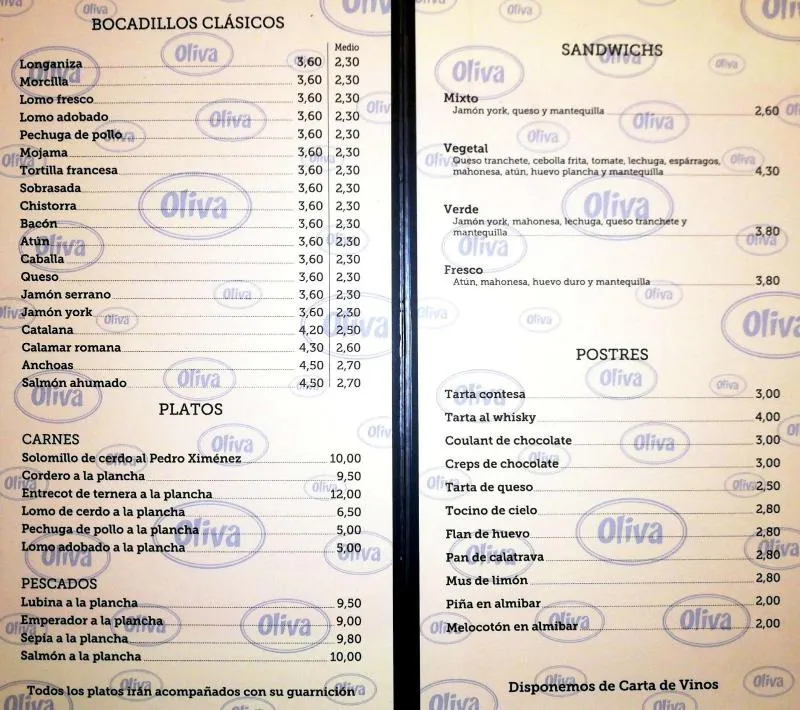 BOCADILLOS CLÁSICOS
Medio
Longaniza 3,60 2,30
Morcilla 3,60 2,30
Lomo fresco 3,60 2,30
Lomo adobado 3,60 2,30
Pechuga de pollo 3,60 2,30
Mojama 3,60 2,30
Tortilla francesa 3,60 2,30
Sobrasada 3,60 2,30
Chistorra 3,60 2,30
Bacón 3,60 2,30
Atún 3,60 2,30
Caballa 3,60 2,30
Queso 3,60 2,30
Jamón serrano 3,60 2,30
Jamón york 3,60 2,30
Catalana 4,20 2,50
Calamar romana 4,30 2,60
Anchoas 4,50 2,70
Salmón ahumado 4,50 2,70
PLATOS
CARNES
Solomillo de cerdo al Pedro Ximénez 10,00
Cordero a la plancha 9,50
Entrecot de ternera a la plancha 12,00
Lomo de cerdo a la plancha 6,50
Pechuga de pollo a la plancha 5,00
Lomo adobado a la plancha 5,00
PESCADOS
Lubina a la plancha 9,50
Emperador a la plancha 9,00
Sepia a la plancha 9,80
Salmón a la plancha 10,00
Todos los platos irán acompañados con su guarnición
SANDWICHS
Mixto
Jamón york, queso y mantequilla 2,60
Vegetal
Queso tranchete, cebolla frita, tomate, lechuga, espárragos,
mahonesa, atún, huevo plancha y mantequilla 4,30
Verde
Jamón york, mahonesa, lechuga, queso tranchete y
mantequilla 3,80
Fresco
Atún, mahonesa, huevo duro y mantequilla 3,80
POSTRES
Tarta contesa 3,00
Tarta al whisky 4,00
Coulant de chocolate 3,00
Creps de chocolate 3,00
Tarta de queso 2,50
Tocino de cielo 2,80
Flan de huevo 2,80
Pan de calatrava 2,80
Mus de limón 2,80
Piña en almibar 2,00
Melocotón en almibar 2,00
Disponemos de Carta de Vinos
Oliva